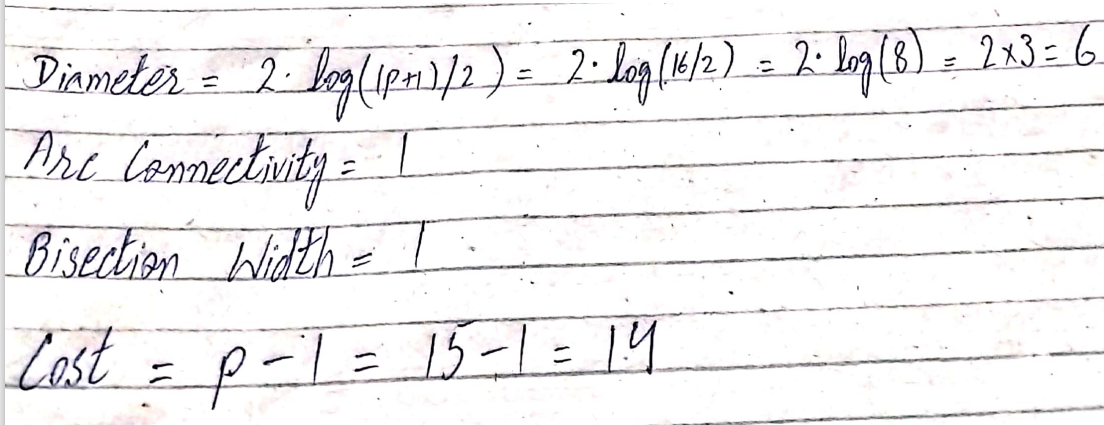 Diameter = 2. log((p+1)/2) = 2. log(16/2) = 2. log(8) = 2x3 = 6
Arc Connectivity = 1
Bisection Width = 1
Cost = p - 1 = 15 - 1 = 14